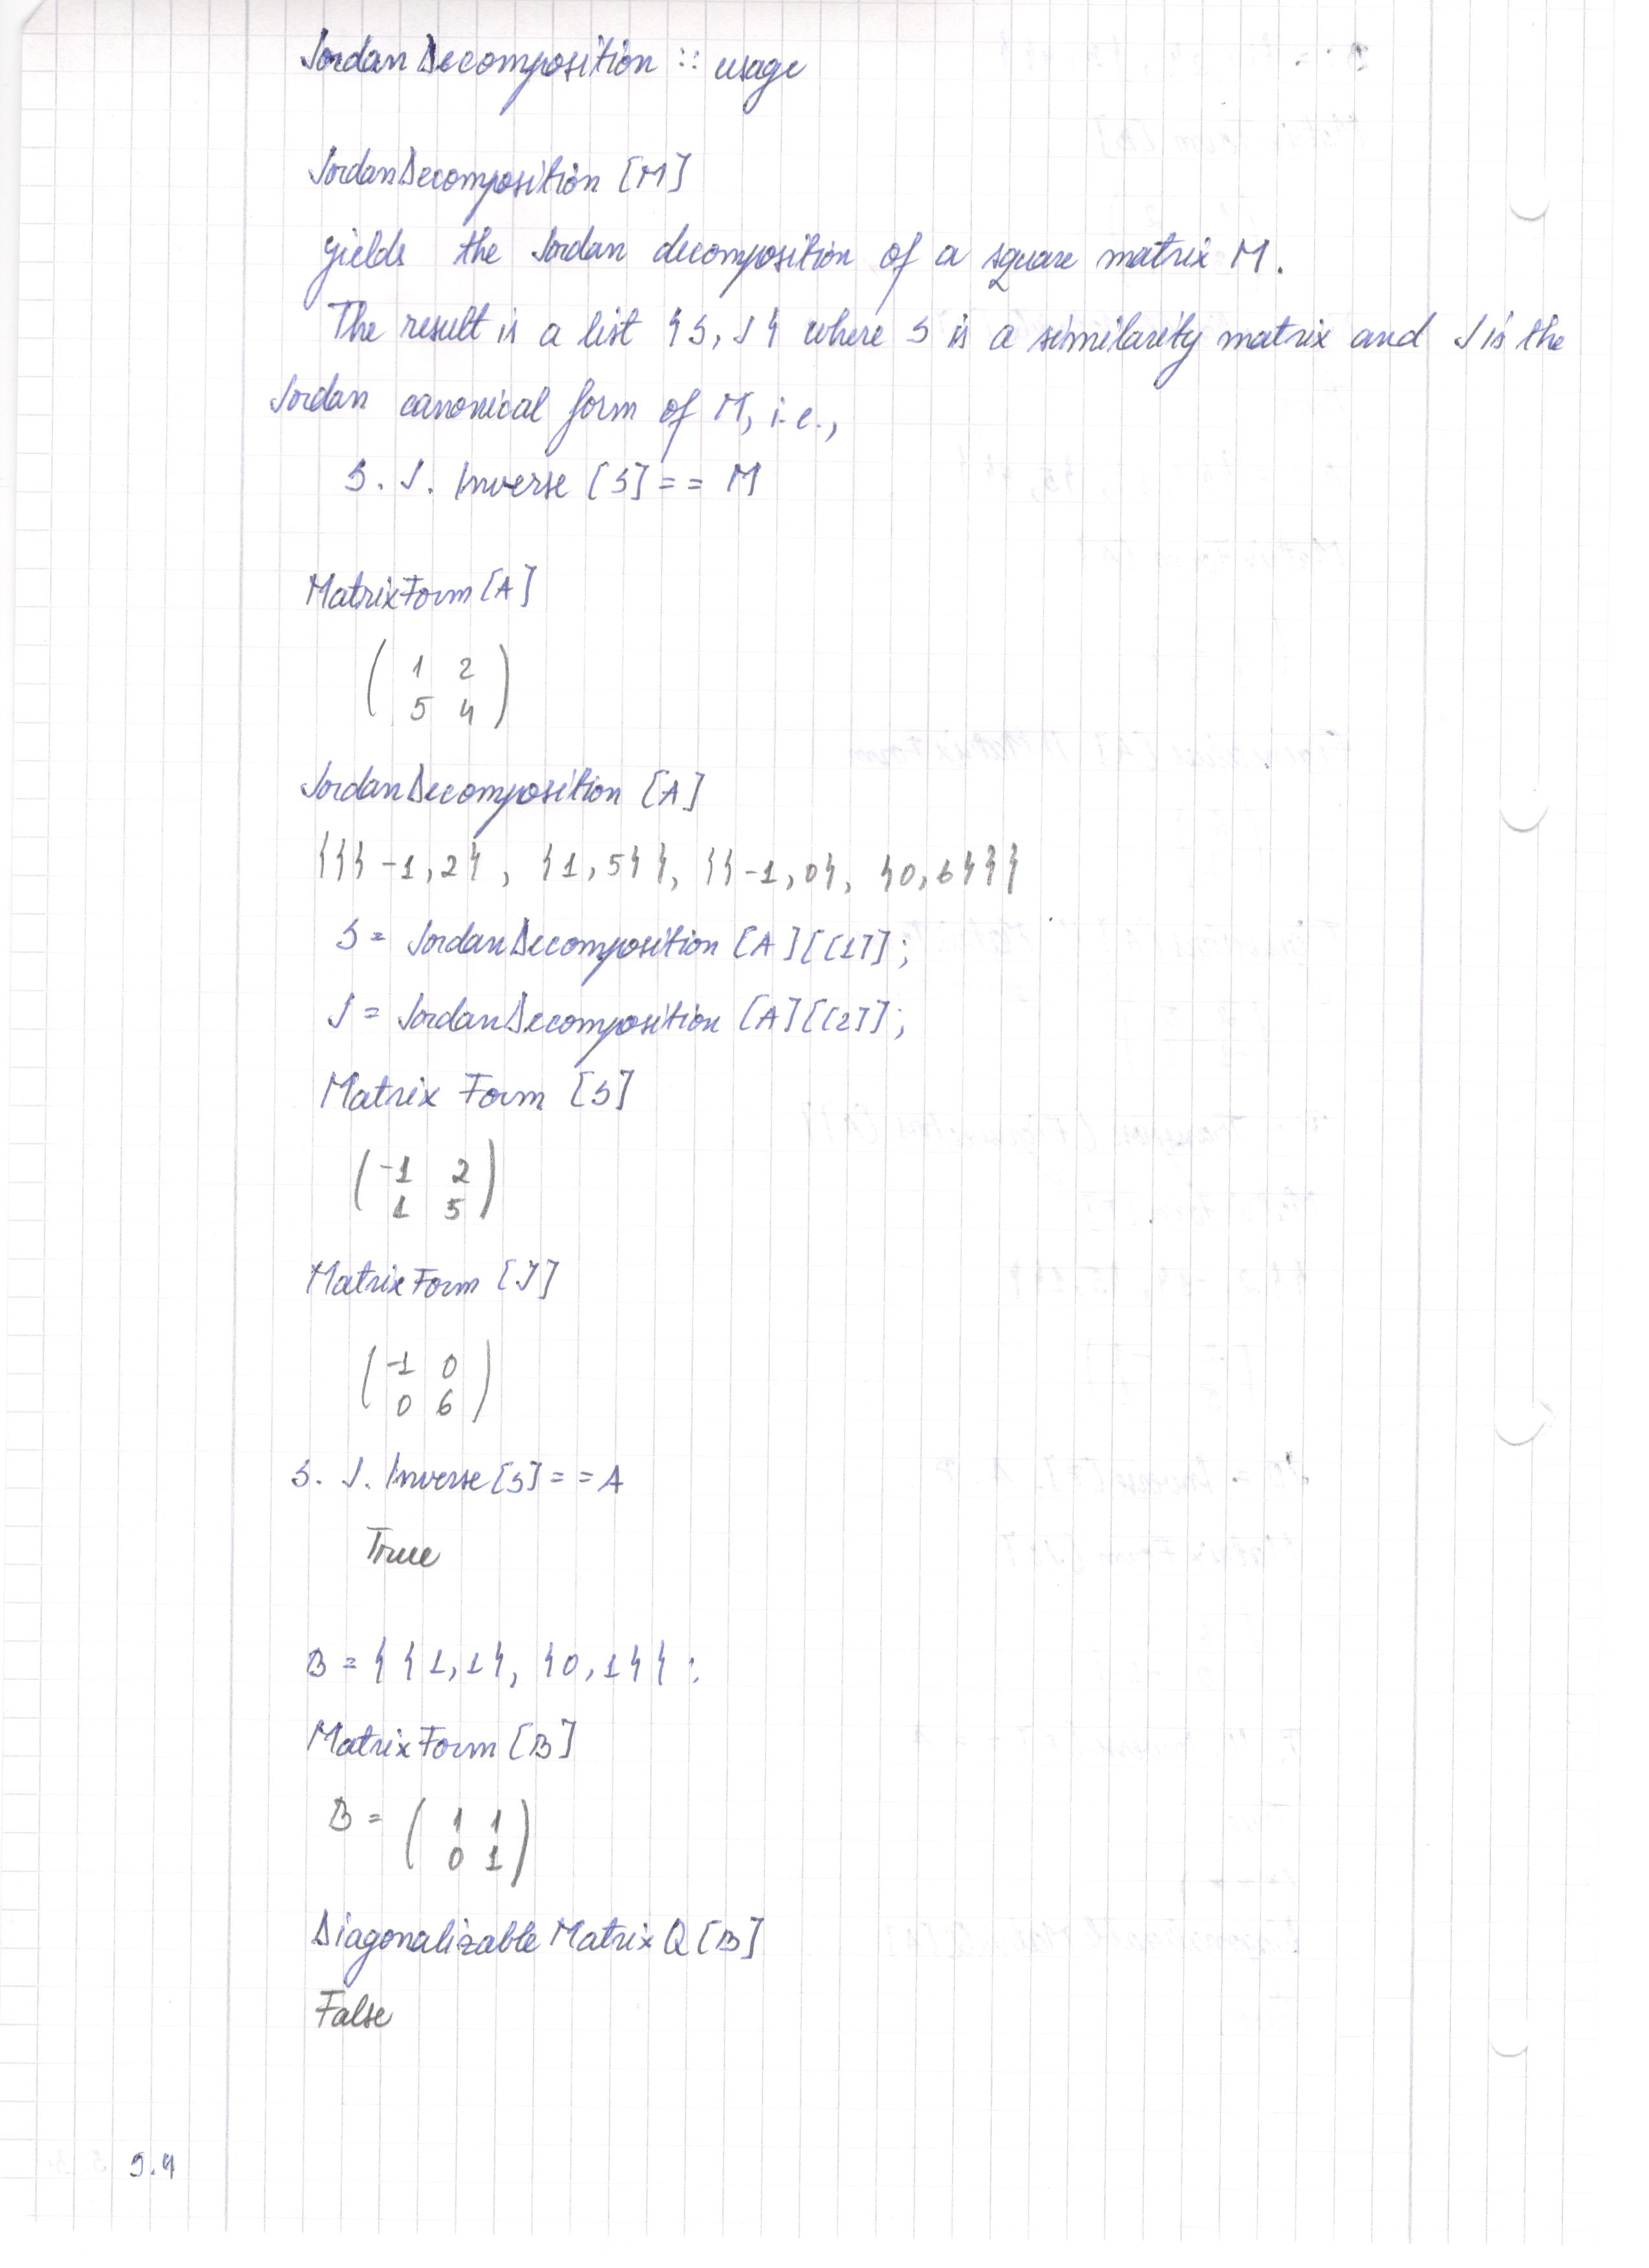 JordanDecomposition :: usage
JordanDecomposition [M]
yields the Jordan decomposition of a square matrix M.
The result is a list {S, J} where S is a similarity matrix and J is the
Jordan canonical form of M, i.e.,
S. J. Inverse [S] == M
MatrixForm [A]
( 1 2
5 4 )
JordanDecomposition [A]
{{{-1,2}, {1,5}}, {{-1,0}, {0,6}}}
S = JordanDecomposition [A][[1]];
J = JordanDecomposition [A][[2]];
Matrix Form [S]
( -1 2
1 5 )
MatrixForm [J]
( -1 0
0 6 )
S. J. Inverse [S] == A
True
B = {{1,1}, {0,1}} ;
MatrixForm [B]
B = ( 1 1
0 1 )
DiagonalizableMatrixQ [B]
False